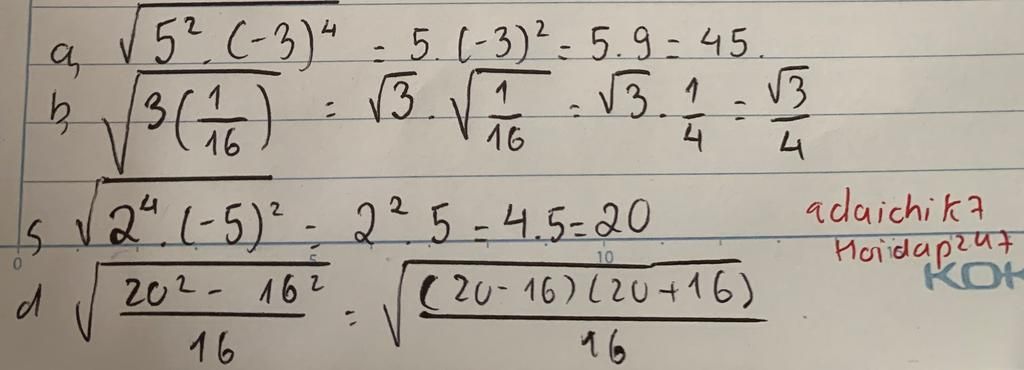 a, √(5² . (-3)⁴) = 5. (-3)² = 5.9 = 45.
b, √(3(1/16)) = √3 . √(1/16) = √3 . 1/4 = √3/4
s √(2⁴.(-5)²) = 2² . 5 = 4.5 = 20
adaichik7
Hoidap247
0 5 10
KOK
d √((20² - 16²)/16) = √((20-16)(20+16)/16)